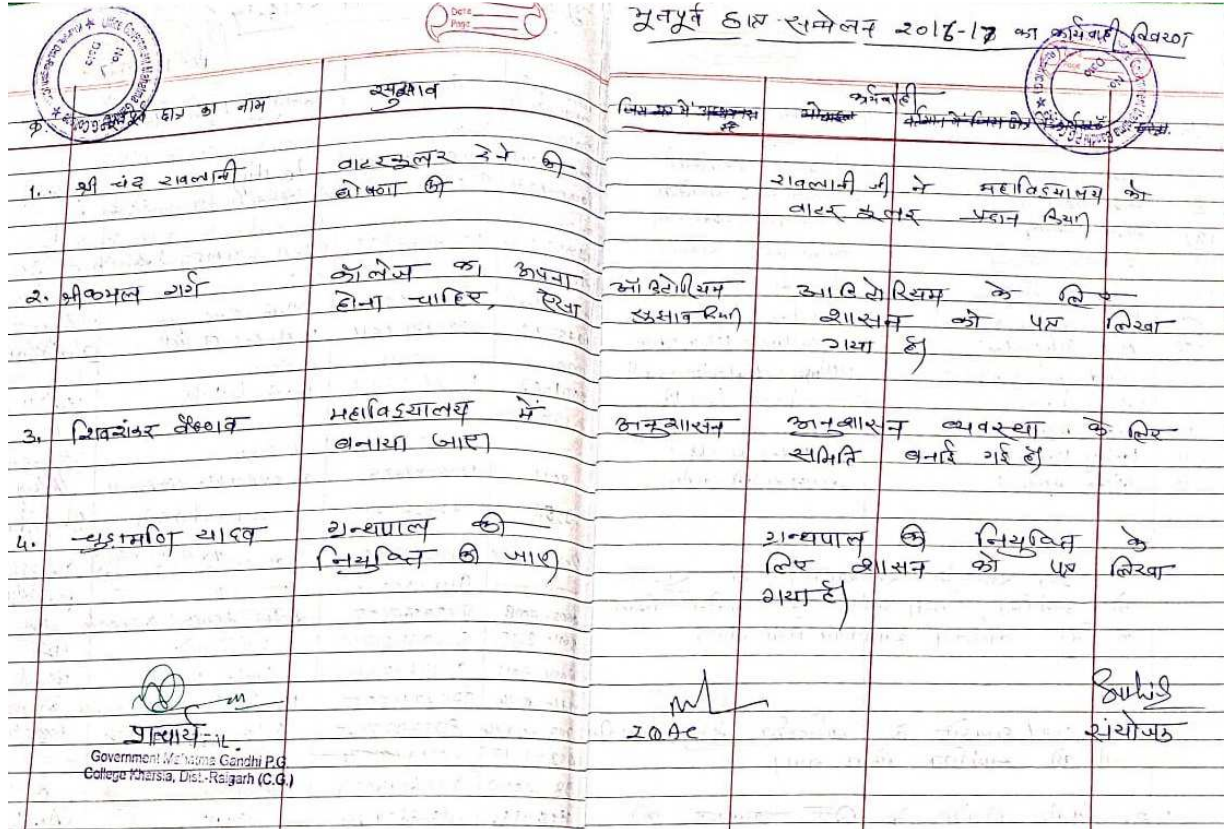 Date
Page
भूतपूर्व छात्र सम्मेलन 2016-17 का कार्यवाही विवरण
क्र. भूतपूर्व छात्र का नाम
सुझाव
कार्यवाही
1. श्री चंद रावलानी
वाटरकुलर देने की
घोषणा की
रावलानी जी ने महाविद्यालय को
वाटर कुलर प्रदान किया।
2. श्री कमल गर्ग
कॉलेज का अपना ऑडिटोरियम
होना चाहिए, ऐसा सुझाव दिया।
आडिटोरियम के लिए
शासन को पत्र लिखा
गया है।
3. शिवशंकर वैष्णव
महाविद्यालय में अनुशासन
बनाया जाए।
अनुशासन व्यवस्था के लिए
समिति बनाई गई है।
4. चुड़ामणि यादव
ग्रन्थपाल की
नियुक्ति की जाए।
ग्रन्थपाल की नियुक्ति के
लिए शासन को पत्र लिखा
गया है।
प्राचार्य
Government Mahatma Gandhi P.G.
College Kharsia, Dist.-Raigarh (C.G.)
IQAC
संयोजक